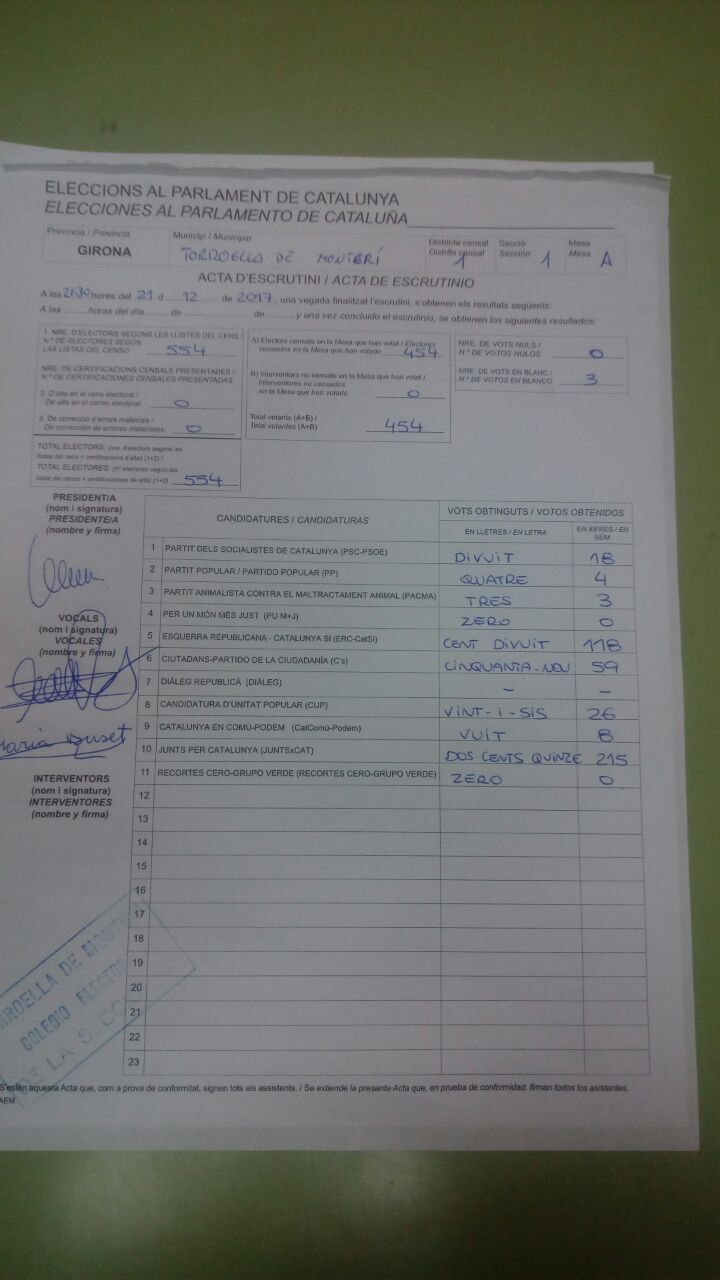 ELECCIONS AL PARLAMENT DE CATALUNYA
ELECCIONES AL PARLAMENTO DE CATALUÑA
Província / Provincia
GIRONA
Municipi / Municipio
TORROELLA DE MONTGRÍ
Districte censal
Distrito censal
1
Secció
Sección
1
Mesa
Mesa
A
ACTA D'ESCRUTINI / ACTA DE ESCRUTINIO
A les 21:30 hores del 21 d 12 de 2017, una vegada finalitzat l'escrutini, s'obtenen els resultats següents:
A las horas del día de de , y una vez concluido el escrutinio, se obtienen los siguientes resultados:
1. NRE. D'ELECTORS SEGONS LES LLISTES DEL CENS /
N.º DE ELECTORES SEGÚN
LAS LISTAS DEL CENSO 554
NRE. DE CERTIFICACIONS CENSALS PRESENTADES /
N.º DE CERTIFICACIONES CENSALES PRESENTADAS
2. D'alta en el cens electoral /
De alta en el censo electoral: 0
3. De correcció d'errors materials /
De corrección de errores materiales: 0
TOTAL ELECTORS: (nre. d'electors segons les
llistes del cens + certificacions d'alta) (1+2) /
TOTAL ELECTORES: (nº electores según las
listas del censo + certificaciones de alta) (1+2) 554
A) Electors censats en la Mesa que han votat / Electores
censados en la Mesa que han votado 454
B) Interventors no censats en la Mesa que han votat /
Interventores no censados
en la Mesa que han votado 0
Total votants (A+B) /
Total votantes (A+B) 454
NRE. DE VOTS NULS /
N.º DE VOTOS NULOS 0
NRE. DE VOTS EN BLANC /
N.º DE VOTOS EN BLANCO 3
PRESIDENT/A
(nom i signatura)
PRESIDENTE/A
(nombre y firma)
VOCALS
(nom i signatura)
VOCALES
(nombre y firma)
INTERVENTORS
(nom i signatura)
INTERVENTORES
(nombre y firma)
CANDIDATURES / CANDIDATURAS
VOTS OBTINGUTS / VOTOS OBTENIDOS
EN LLETRES / EN LETRA
EN XIFRES / EN NÚM.
1 PARTIT DELS SOCIALISTES DE CATALUNYA (PSC-PSOE) DIVUIT 18
2 PARTIT POPULAR / PARTIDO POPULAR (PP) QUATRE 4
3 PARTIT ANIMALISTA CONTRA EL MALTRACTAMENT ANIMAL (PACMA) TRES 3
4 PER UN MÓN MÉS JUST (PU M+J) ZERO 0
5 ESQUERRA REPUBLICANA - CATALUNYA SÍ (ERC-CatSí) CENT DIVUIT 118
6 CIUTADANS-PARTIDO DE LA CIUDADANÍA (C's) CINQUANTA-NOU 59
7 DIÀLEG REPUBLICÀ (DIÀLEG) - -
8 CANDIDATURA D'UNITAT POPULAR (CUP) VINT-I-SIS 26
9 CATALUNYA EN COMÚ-PODEM (CatComú-Podem) VUIT 8
10 JUNTS PER CATALUNYA (JUNTSxCAT) DOS CENTS QUINZE 215
11 RECORTES CERO-GRUPO VERDE (RECORTES CERO-GRUPO VERDE) ZERO 0
12
13
14
15
16
17
18
19
20
21
22
23
S'estén aquesta Acta que, com a prova de conformitat, signen tots els assistents. / Se extiende la presente Acta que, en prueba de conformidad, firman todos los asistentes.
AEM
RROELLA DE MONT
COLEGIO ELECTO
DE LA S